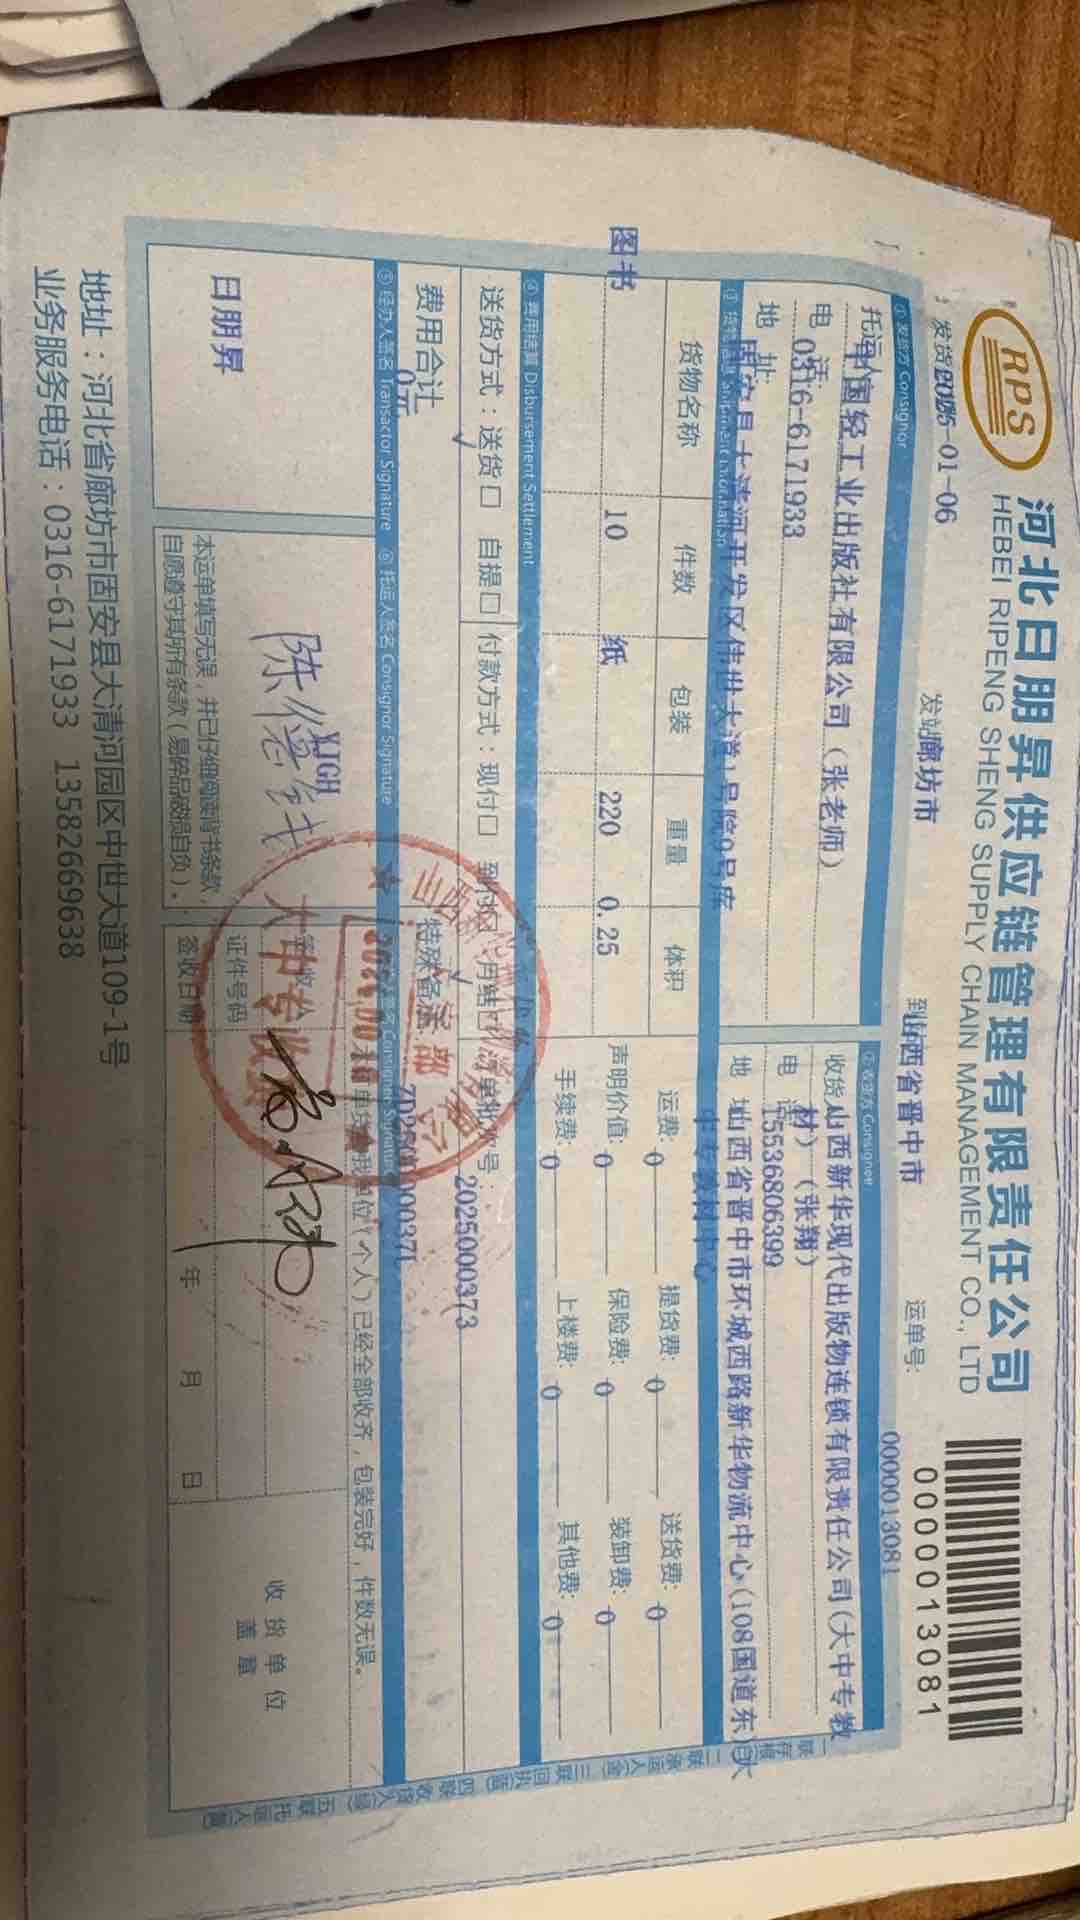 RPS
河北日朋昇供应链管理有限责任公司
HEBEI RIPENG SHENG SUPPLY CHAIN MANAGEMENT CO., LTD
0000013081
发货 2025-01-06
发站 廊坊市
到站 山西省晋中市
运单号:
0000013081
① 发货方 Consignor
托运人 中国轻工业出版社有限公司（张老师）
电话: 0316-6171933
地址: 固安县大清河开发区伟世大道1号院9号库
② 收货方 Consignee
收货 山西新华现代出版物连锁有限责任公司(大中专教
材)（张翔）
电话 15536806399
地址 山西省晋中市环城西路新华物流中心(108国道东)
中专教材中心
③ 货物信息 Shipment Information
货物名称 件数 包装 重量 体积
图书 10 纸 220 0.25
运费: 0 提货费: 0 送货费: 0
声明价值: 0 保险费: 0 装卸费: 0
手续费: 0 上楼费: 0 其他费: 0
④ 费用结算 Disbursement Settlement
送货方式：送货□ 自提□ 付款方式：现付□ 到付□ 月结□
2025000373
费用合计
0元
特殊备注
⑤ 经办人签名 Transactor Signature
⑥ 托运人签名 Consignor Signature
日朋昇
XTGH
本运单填写无误，并已仔细阅读背书条款，
自愿遵守其所有条款（易碎品破损自负）。
单位(个人)已经全部收齐，包装完好，件数无误。
签收人
证件号码
签收日期
年 月 日
收货单位
盖章
一联存根 二联承运人 三联回执 四联收货人 五联托运人
地址：河北省廊坊市固安县大清河园区中世大道109-1号
业务服务电话：0316-6171933 13582669638